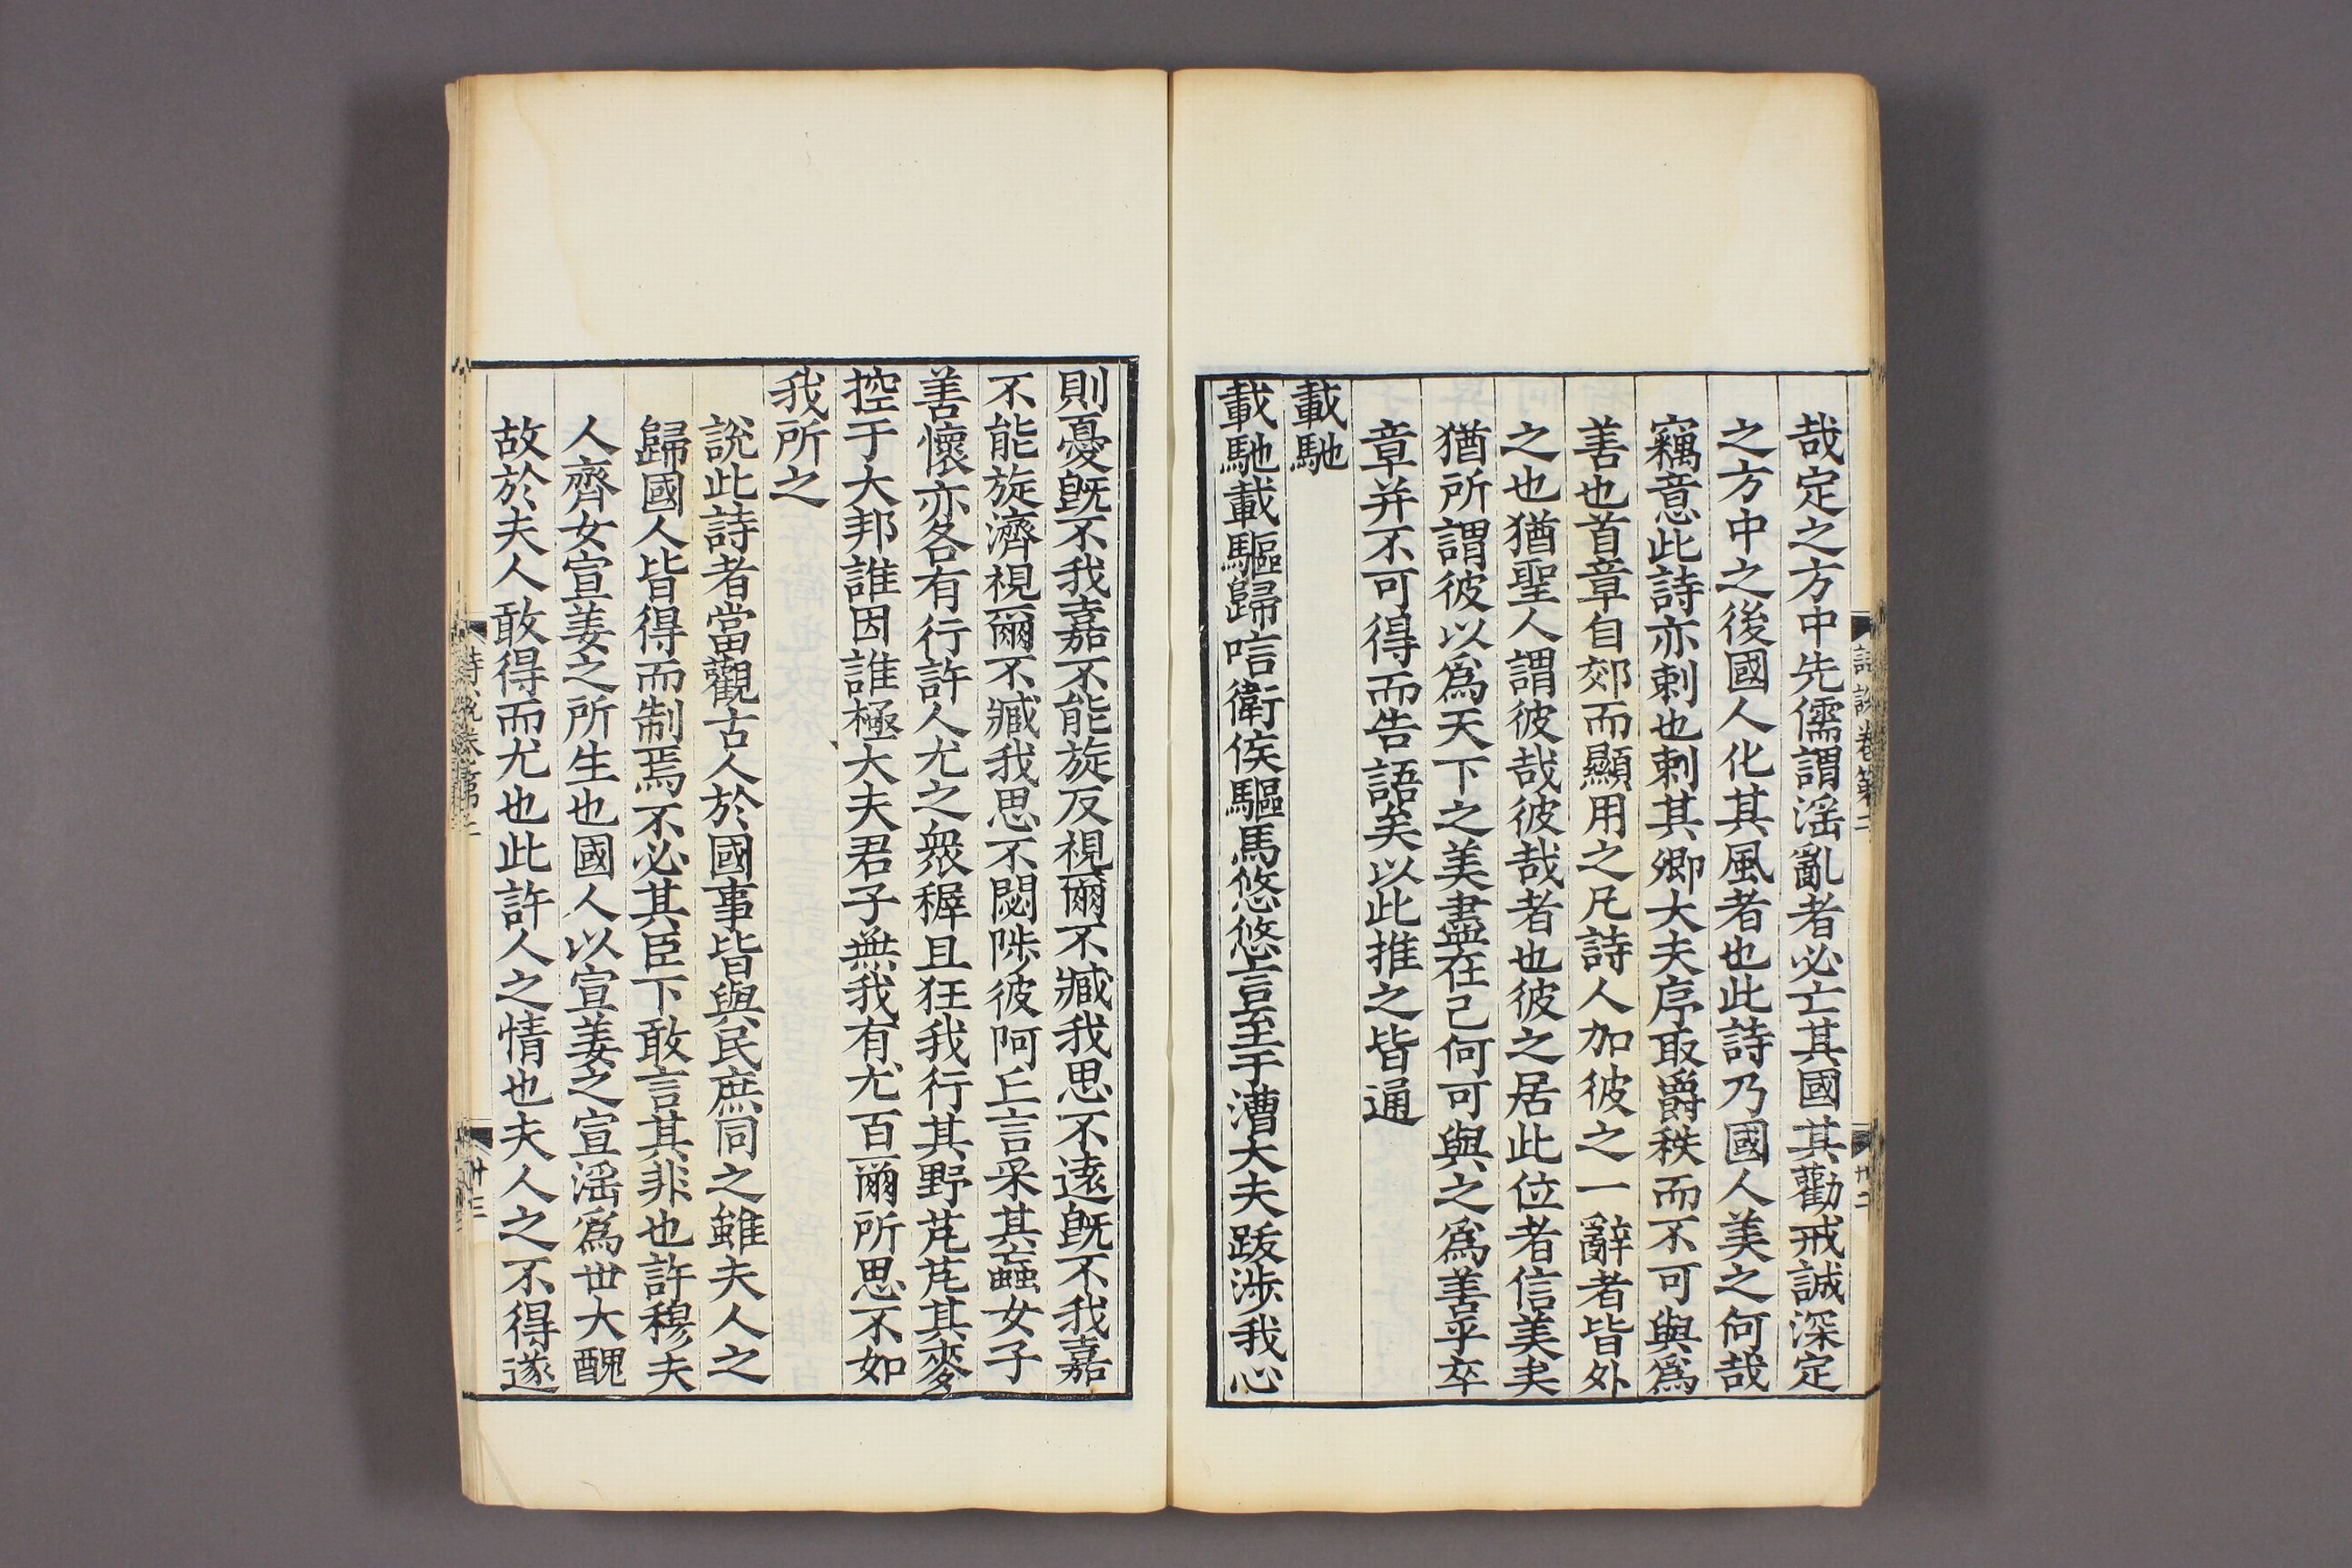 哉定之方中先儒謂滛亂者必亡其國其勸戒誠深定
之方中之後國人化其風者也此詩乃國人美之何哉
竊意此詩亦刺也刺其卿大夫序取爵秩而不可與爲
善也首章自郊而顯用之凡詩人加彼之一辭者皆外
之也猶聖人謂彼哉彼哉者也彼之居此位者信美矣
猶所謂彼以爲天下之美盡在己何可與之爲善乎卒
章并不可得而告語矣以此推之皆通
載馳
載馳載驅歸唁衛侯驅馬悠悠言至于漕大夫跋涉我心
則憂旣不我嘉不能旋反視爾不臧我思不遠旣不我嘉
不能旋濟視爾不臧我思不閟陟彼阿丘言采其蝱女子
善懷亦各有行許人尤之衆穉且狂我行其野芃芃其麥
控于大邦誰因誰極大夫君子無我有尤百爾所思不如
我所之
說此詩者當觀古人於國事皆與民庶同之雖夫人之
歸國人皆得而制焉不必其臣下敢言其非也許穆夫
人齊女宣姜之所生也國人以宣姜之宣滛爲世大醜
故於夫人敢得而尤也此許人之情也夫人之不得遂
詩說卷第二
廿三